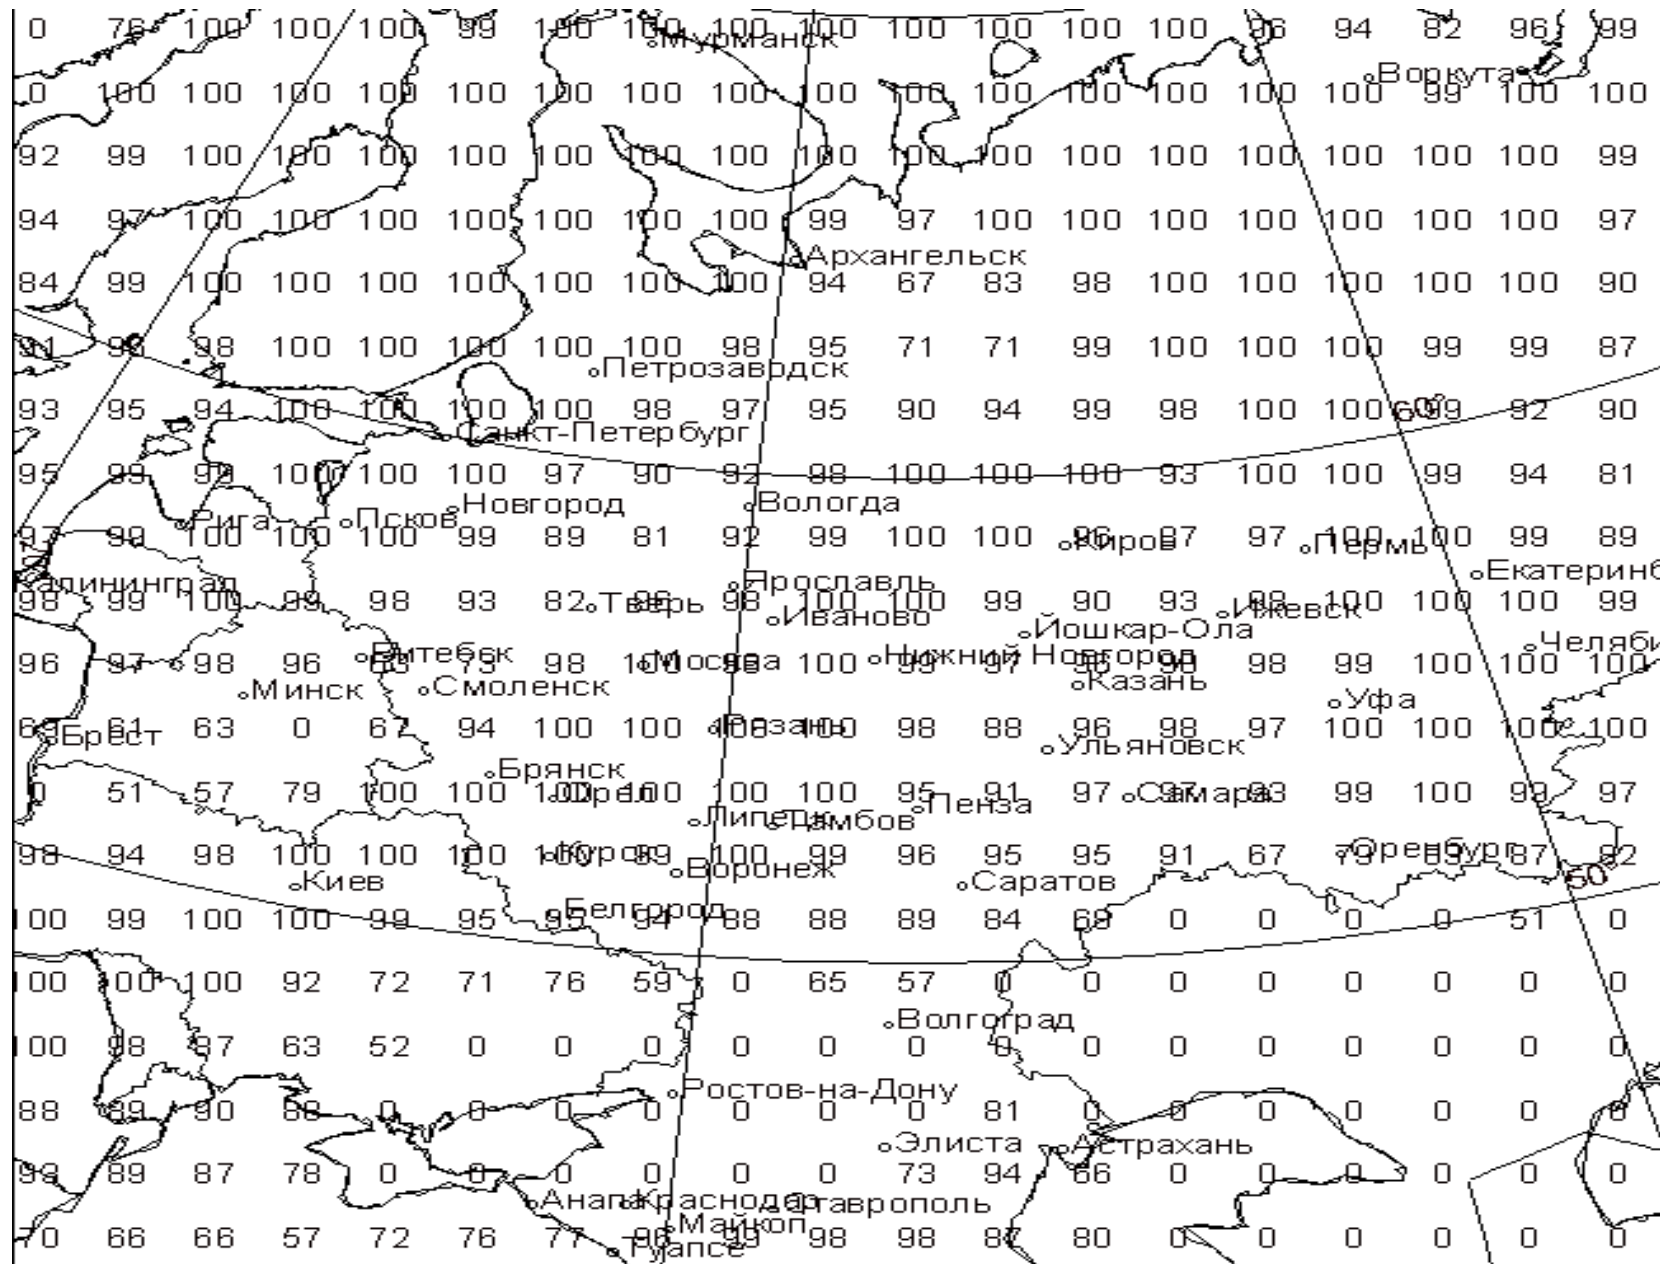 0 76 100 100 100 99 100 100 100 100 100 100 100 96 94 82 96 99
Мурманск
Воркута
0 100 100 100 100 100 100 100 100 100 100 100 100 100 100 100 99 100 100
92 99 100 100 100 100 100 100 100 100 100 100 100 100 100 100 100 100 99
94 97 100 100 100 100 100 100 100 99 97 100 100 100 100 100 100 100 97
Архангельск
84 99 100 100 100 100 100 100 100 94 67 83 98 100 100 100 100 100 90
91 96 98 100 100 100 100 100 98 95 71 71 99 100 100 100 99 99 87
Петрозаводск
93 95 94 100 100 100 100 98 97 95 90 94 99 98 100 100 60° 99 92 90
Санкт-Петербург
95 99 99 100 100 100 97 90 92 98 100 100 100 93 100 100 99 94 81
Новгород Вологда
Рига Псков
97 99 100 100 100 99 89 81 92 99 100 100 96 87 97 100 100 99 89
Киров Пермь
Калининград Ярославль Екатеринб
98 99 100 99 98 93 82 96 98 100 100 99 90 93 98 100 100 100 99
Тверь Иваново Ижевск
Йошкар-Ола Челяби
96 97 98 96 63 73 98 100 98 100 99 97 96 90 98 99 100 100 100
Витебск Москва Нижний Новгород
Минск Смоленск Казань Уфа
69 61 63 0 67 94 100 100 100 100 98 88 96 98 97 100 100 100 100
Брест Рязань Ульяновск
Брянск
0 51 57 79 100 100 100 100 100 100 95 91 97 97 93 99 100 99 97
Орел Пенза Самара
Липецк Тамбов
98 94 98 100 100 100 100 99 100 99 96 95 95 91 67 79 89 87 82
Курск Воронеж Оренбург
Киев Саратов 50°
Белгород
100 99 100 100 99 95 95 94 88 88 89 84 69 0 0 0 0 51 0
100 100 100 92 72 71 76 59 0 65 57 0 0 0 0 0 0 0 0
Волгоград
100 98 97 63 52 0 0 0 0 0 0 0 0 0 0 0 0 0 0
Ростов-на-Дону
88 89 90 88 0 0 0 0 0 0 0 81 0 0 0 0 0 0 0
Элиста Астрахань
93 89 87 78 0 0 0 0 0 0 73 94 66 0 0 0 0 0 0
Анапа Краснодар Ставрополь
Майкоп
70 66 66 57 72 76 77 96 99 98 98 87 80 0 0 0 0 0 0
Туапсе